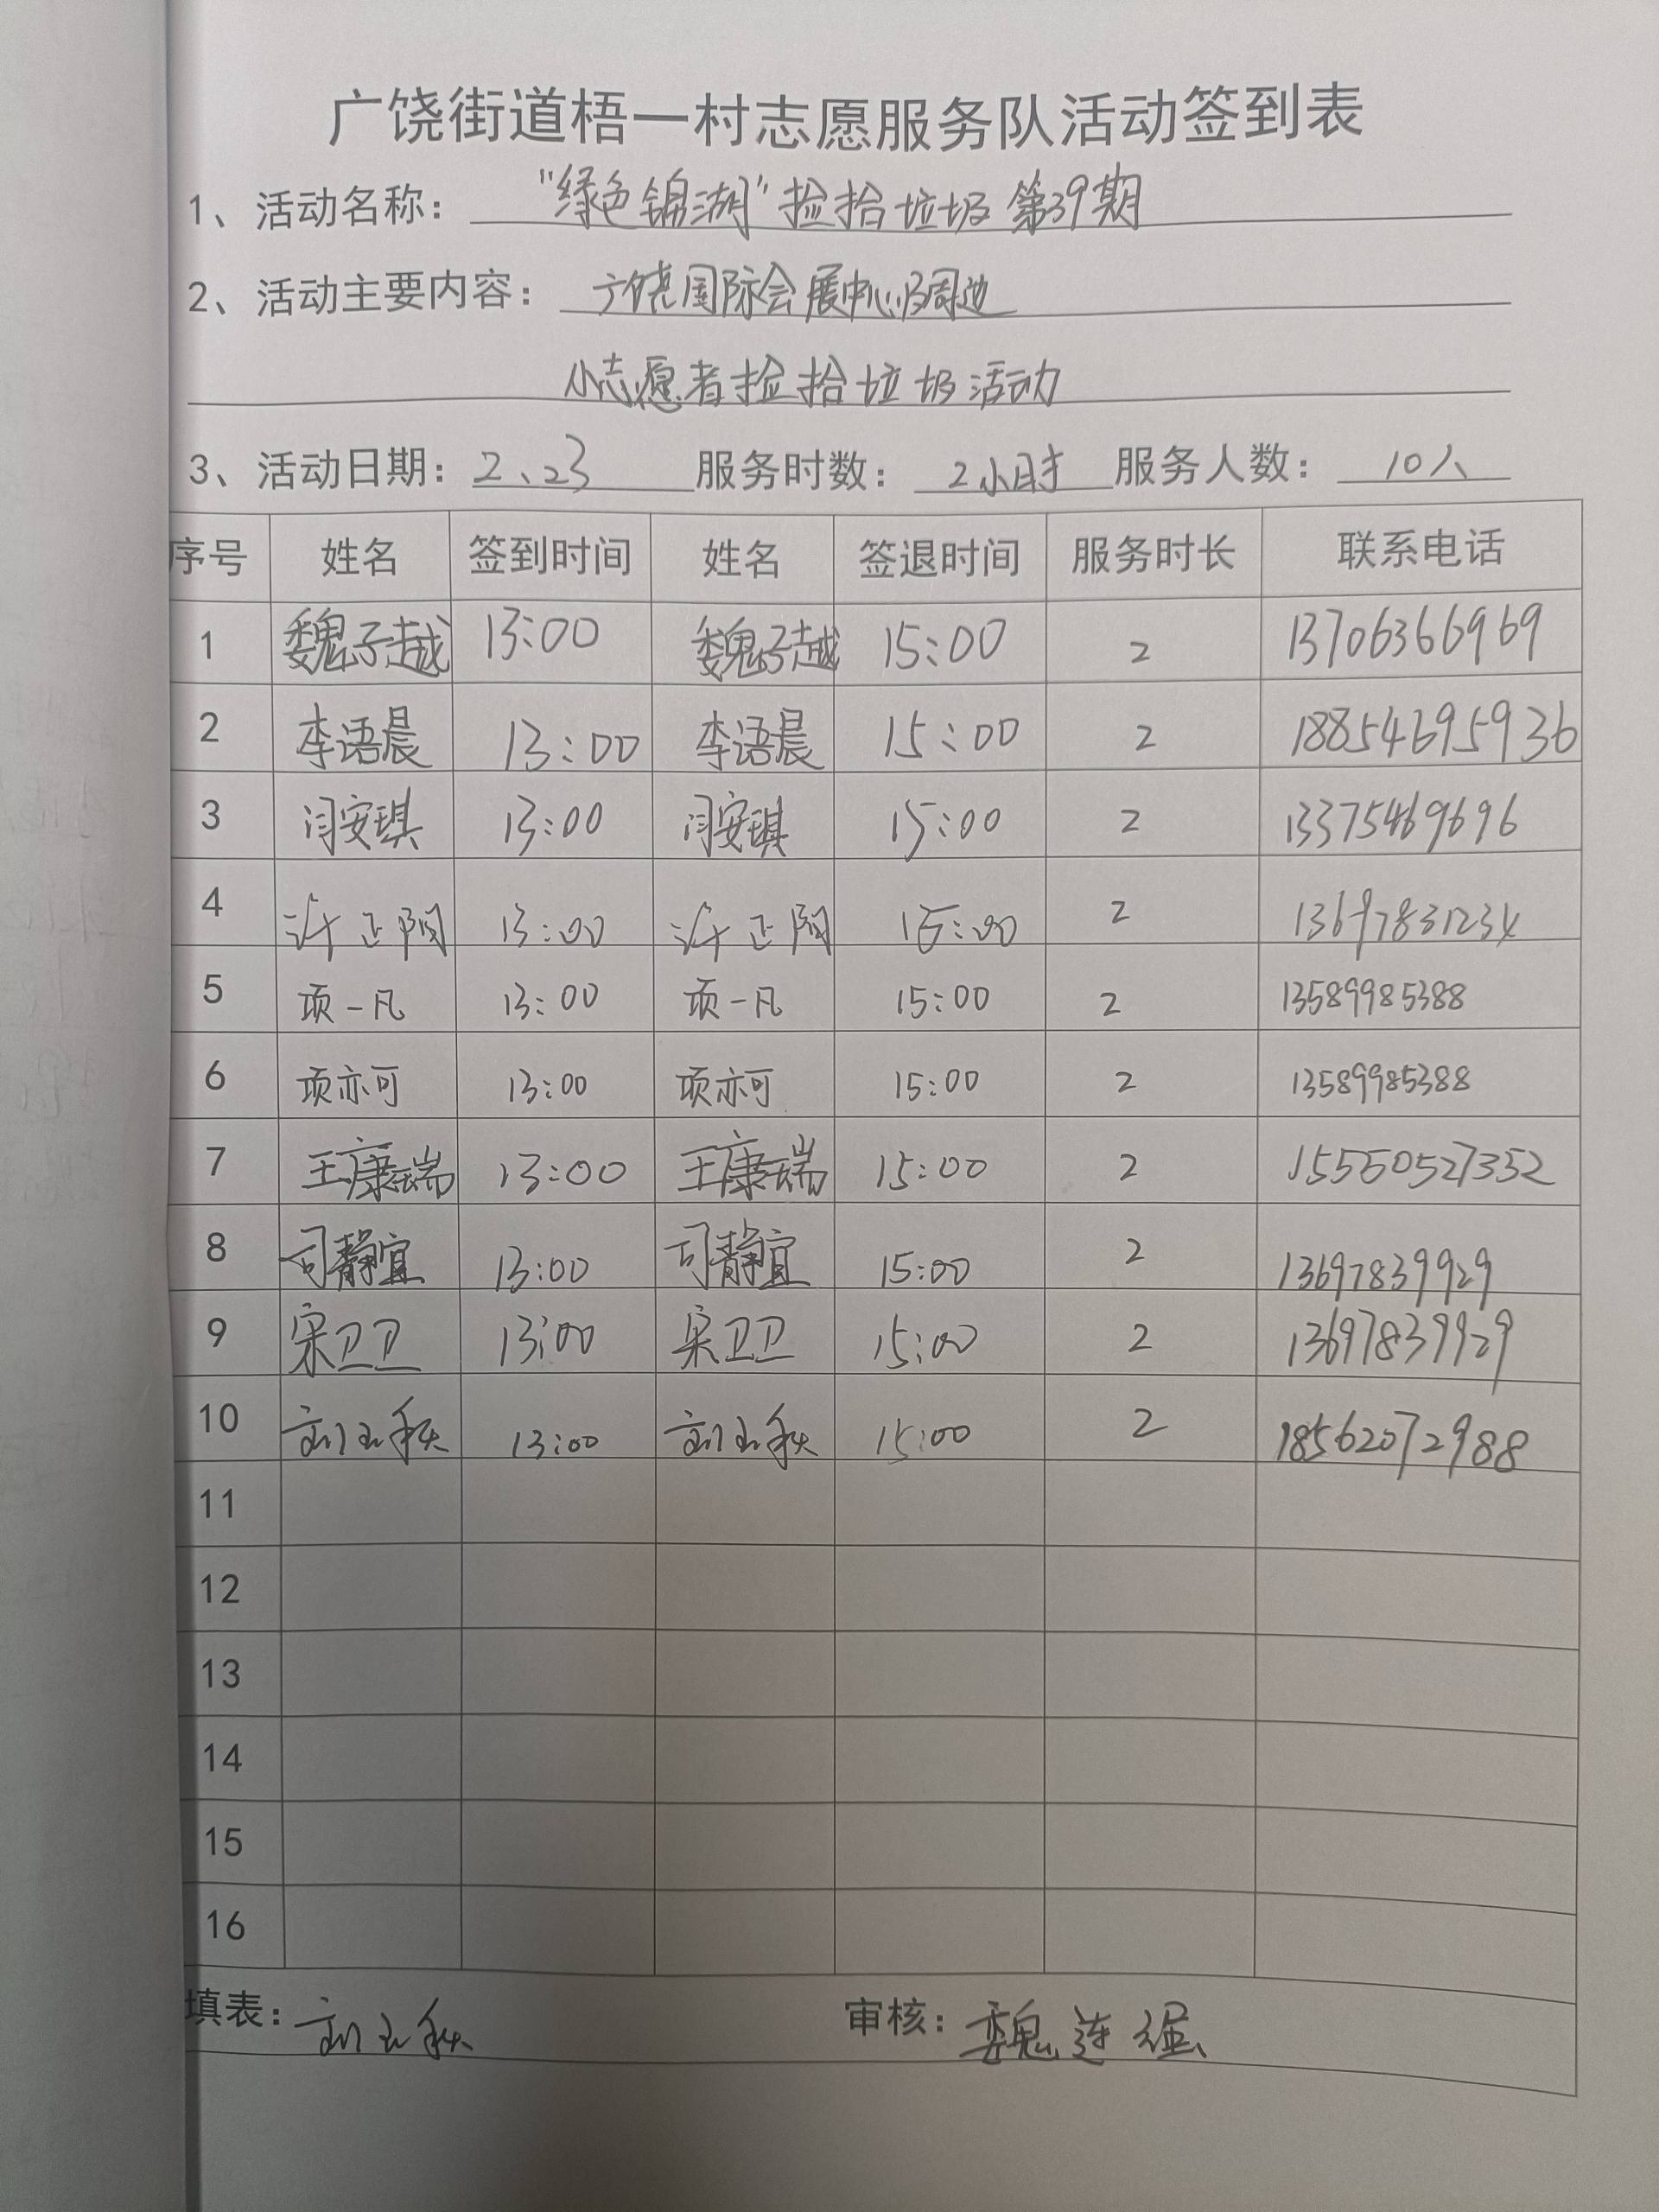 广饶街道梧一村志愿服务队活动签到表
1、活动名称：“绿色锦湖”捡拾垃圾第39期
2、活动主要内容：广饶国际会展中心及周边
小志愿者捡拾垃圾活动
3、活动日期：2、23 服务时数：2小时 服务人数：10人
序号 姓名 签到时间 姓名 签退时间 服务时长 联系电话
1 魏子越 13:00 魏子越 15:00 2 13706366969
2 李语晨 13:00 李语晨 15:00 2 18854695936
3 闫安琪 13:00 闫安琪 15:00 2 13375469696
4 许正阳 13:00 许正阳 15:00 2 13697831234
5 项一凡 13:00 项一凡 15:00 2 13589985388
6 项亦可 13:00 项亦可 15:00 2 13589985388
7 王康瑞 13:00 王康瑞 15:00 2 15550527352
8 司静宜 13:00 司静宜 15:00 2 13697839929
9 宋卫卫 13:00 宋卫卫 15:00 2 13697839929
10 刘玉秋 13:00 刘玉秋 15:00 2 18562072988
11
12
13
14
15
16
填表：刘玉秋 审核：魏连强